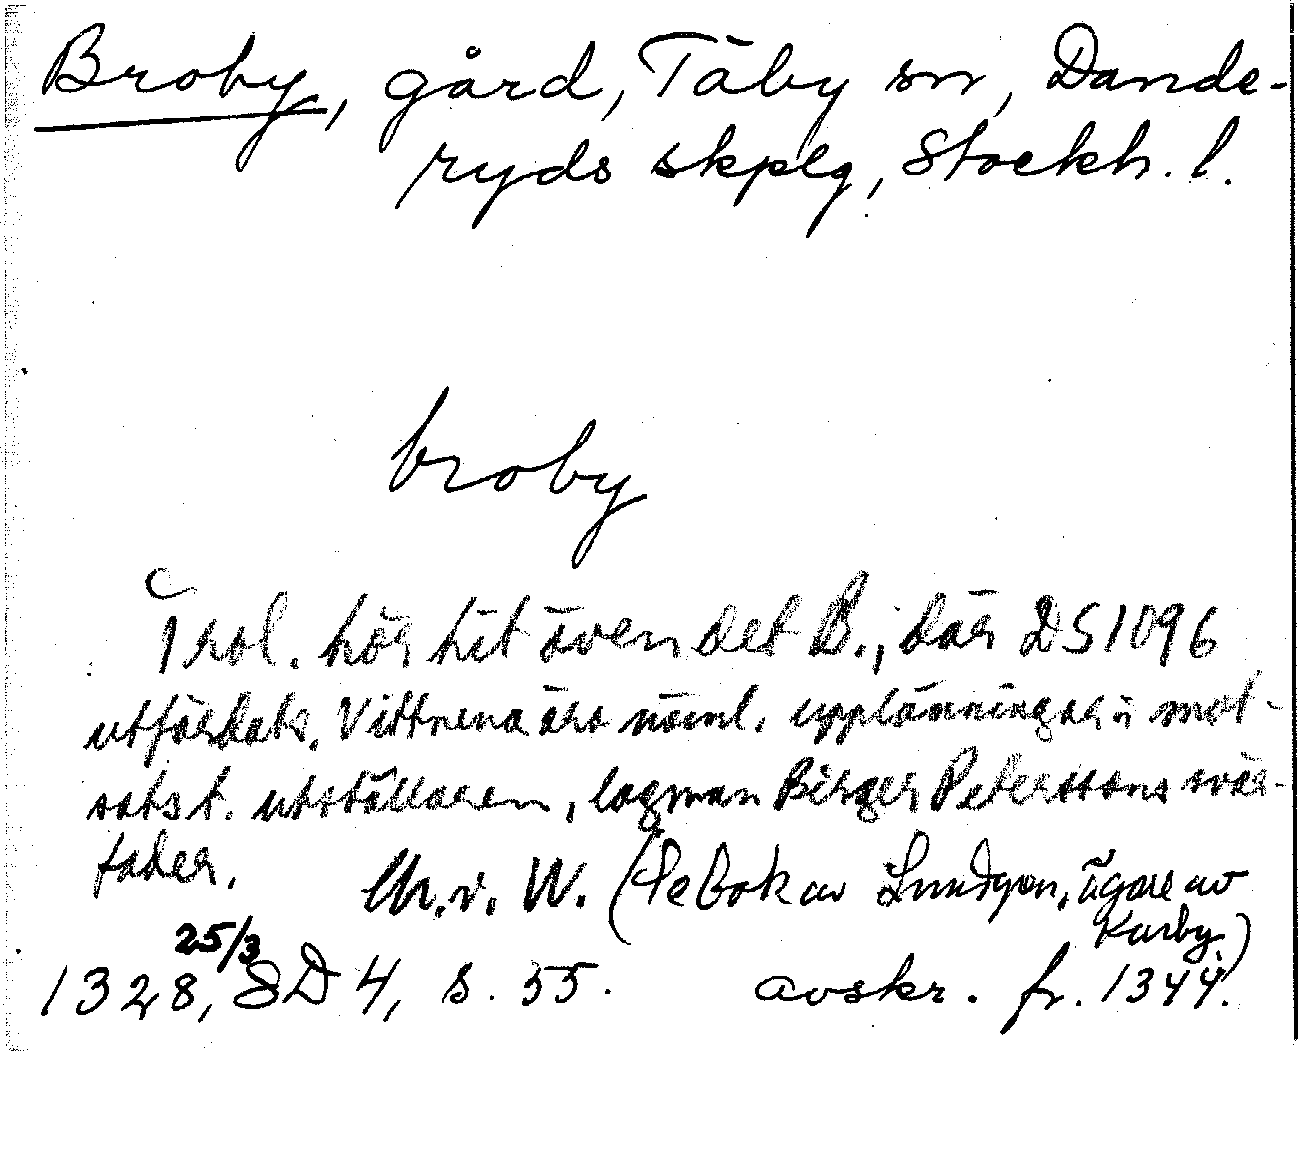 Broby, gård, Täby sn, Dande-
ryds skplg, Stockh. l.
broby
Trol. hör hit även det B., där DS 1096
utfördats. Vittnena äro näml. upplänningar i mot-
sats t. utställaren, lagman Birger Peterssons svär-
fader. M. v. W. (Se bok av Lundgren, ägare av
Karby)
25/3
1328, SD 4, s. 55. avskr. fr. 1344.